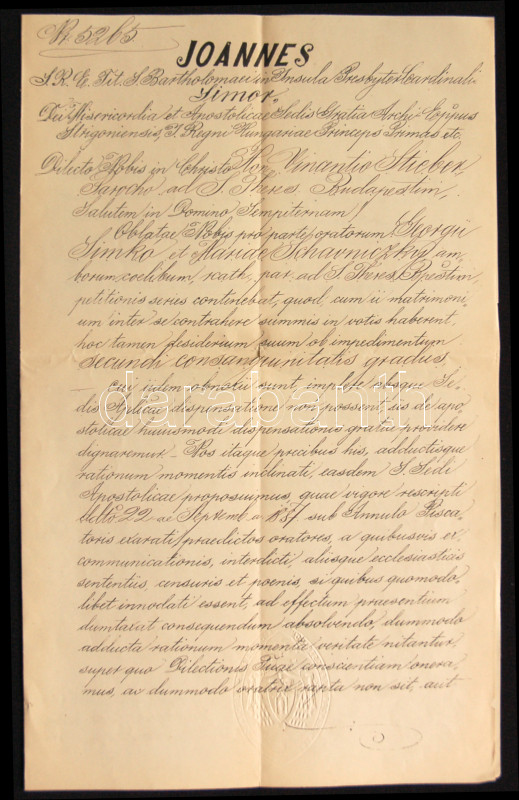 Nr 5265
JOANNES
S. R. E. Tit. S. Bartholomaei in Insula Presbyter Cardinalis
Simor,
Dei Misericordia et Apostolicae Sedis Gratia Archi-Eppus
Strigoniensis, I. Regni Hungariae Princeps Primas etc.
Dilecto Nobis in Christo Vinantio Stieber
Parocho ad S. Theres. Budapestin,
Salutem in Domino Sempiternam!
Oblatae Nobis pro parte oratorum Georgii
Simko, et Mariae am-
borum coelibum, r. cath. par. ad S. Theres. Bpestin.
petitionis series continebat, quod, cum ii matrimoni-
um inter se contrahere summis in votis haberent,
hoc tamen desiderium suum ob impedimentum
secundi consanguinitatis gradus
cui iidem obnoxii sunt, implere absque Se-
dis Aplicae dispensatione non possent, iis de apo-
stolicae huiusmodi dispensationis gratia providere
dignaremur. – Nos itaque precibus his, adductisque
rationum momentis inclinati, easdem S. Sedi
Apostolicae proposuimus, quae vigore rescripti
ddto 22 ae Septemb a 1887. sub Annulo Pisca-
toris exarati praedictos oratores, a quibusvis ex-
communicationis, interdicti, aliisque ecclesiasticis
sententiis, censuris et poenis, si quibus quomodo-
libet innodati essent, ad effectum praesentium
dumtaxat consequendum absolvendo, dummodo
adducta rationum momenta veritate nitantur,
super quo Dilectionis Tuae conscientiam onera-
mus, ac dummodo oratrix rapta non sit, aut
darabanth